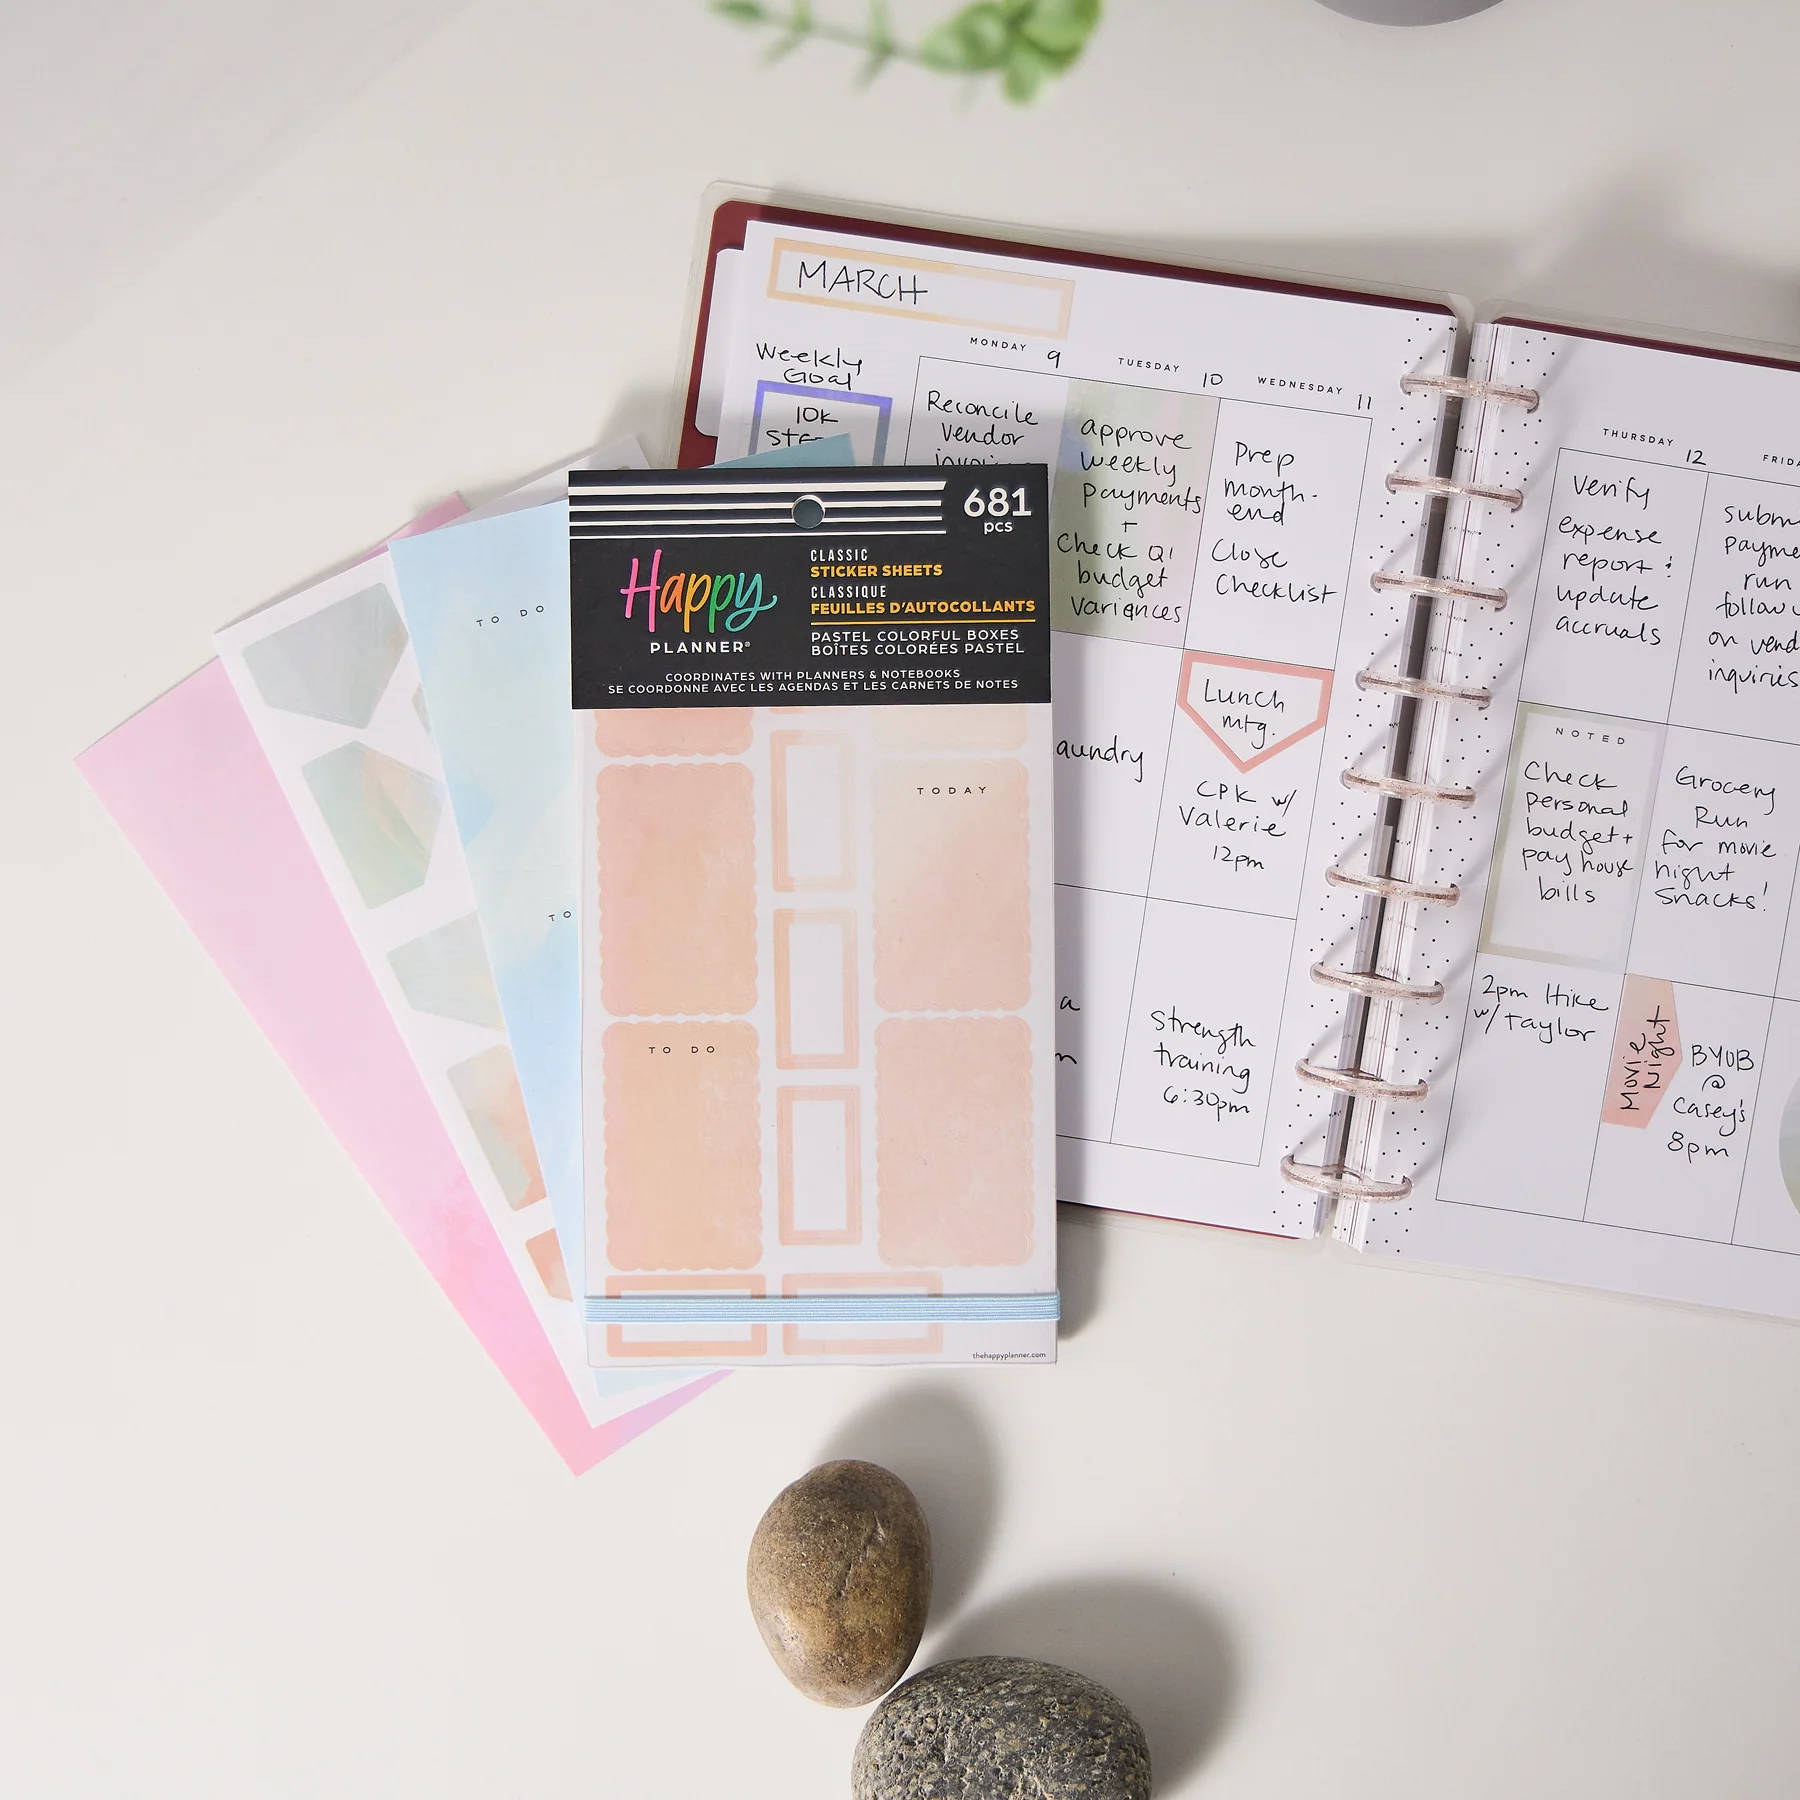 MARCH
Weekly
Goal
10K
MONDAY 9
Reconcile
Vendor
TUESDAY 10
approve
weekly
payments
+
Check Q1
budget
variances
WEDNESDAY 11
Prep
month-
end
Close
Checklist
Lunch
mtg.
CPK w/
Valerie
12pm
Strength
training
6:30pm
THURSDAY 12
Verify
expense
report :
update
accruals
NOTED
Check
personal
budget +
pay house
bills
2pm Hike
w/ Taylor
run
on
inquiries
Grocery
Run
for movie
night
Snacks!
Movie
Night
BYOB
@
Casey's
8pm
TO DO
681
pcs
Happy
PLANNER®
CLASSIC
STICKER SHEETS
CLASSIQUE
FEUILLES D'AUTOCOLLANTS
PASTEL COLORFUL BOXES
BOÎTES COLORÉES PASTEL
COORDINATES WITH PLANNERS & NOTEBOOKS
SE COORDONNE AVEC LES AGENDAS ET LES CARNETS DE NOTES
TODAY
TO DO
thehappyplanner.com